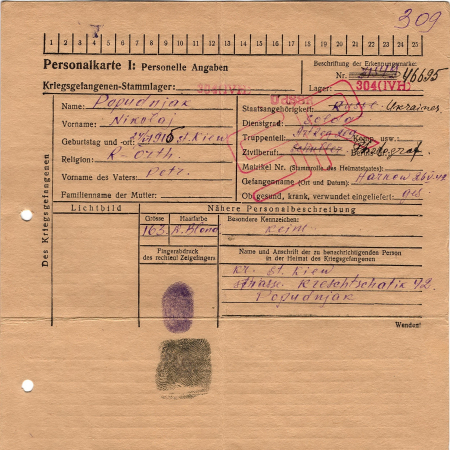 309
1 2 3 4 5 6 7 8 9 10 11 12 13 14 15 16 17 18 19 20 21 22 23 24 25
Personalkarte I: Personelle Angaben
Beschriftung der Erkennungsmarke:
Nr. 46695
Kriegsgefangenen-Stammlager: 304(IVH)
Lager: 304(IVH)
Des Kriegsgefangenen
Name: Pogudnjak
Vorname: Nikolaj
Geburtstag und -ort: st. Kiew
Religion: R-Orth.
Vorname des Vaters: Petr.
Familienname der Mutter:
Staatsangehörigkeit: Russe. Ukrainer
Dienstgrad: Soldat
Truppenteil: Komp. usw.:
Zivilberuf: Fotograf.
Matrikel Nr. (Stammrolle des Heimatstaates):
Gefangennahme (Ort und Datum): Harkow
Ob gesund, krank, verwundet eingeliefert: ges.
Lichtbild
Nähere Personalbeschreibung
Grösse
Haarfarbe
Besondere Kennzeichen:
163
Blond
keine
Fingerabdruck
des rechten! Zeigefingers
Name und Anschrift der zu benachrichtigenden Person
in der Heimat des Kriegsgefangenen
Kr. st. Kiew
Strasse Kreschtschatik 42
Pogudnjak
Wenden!